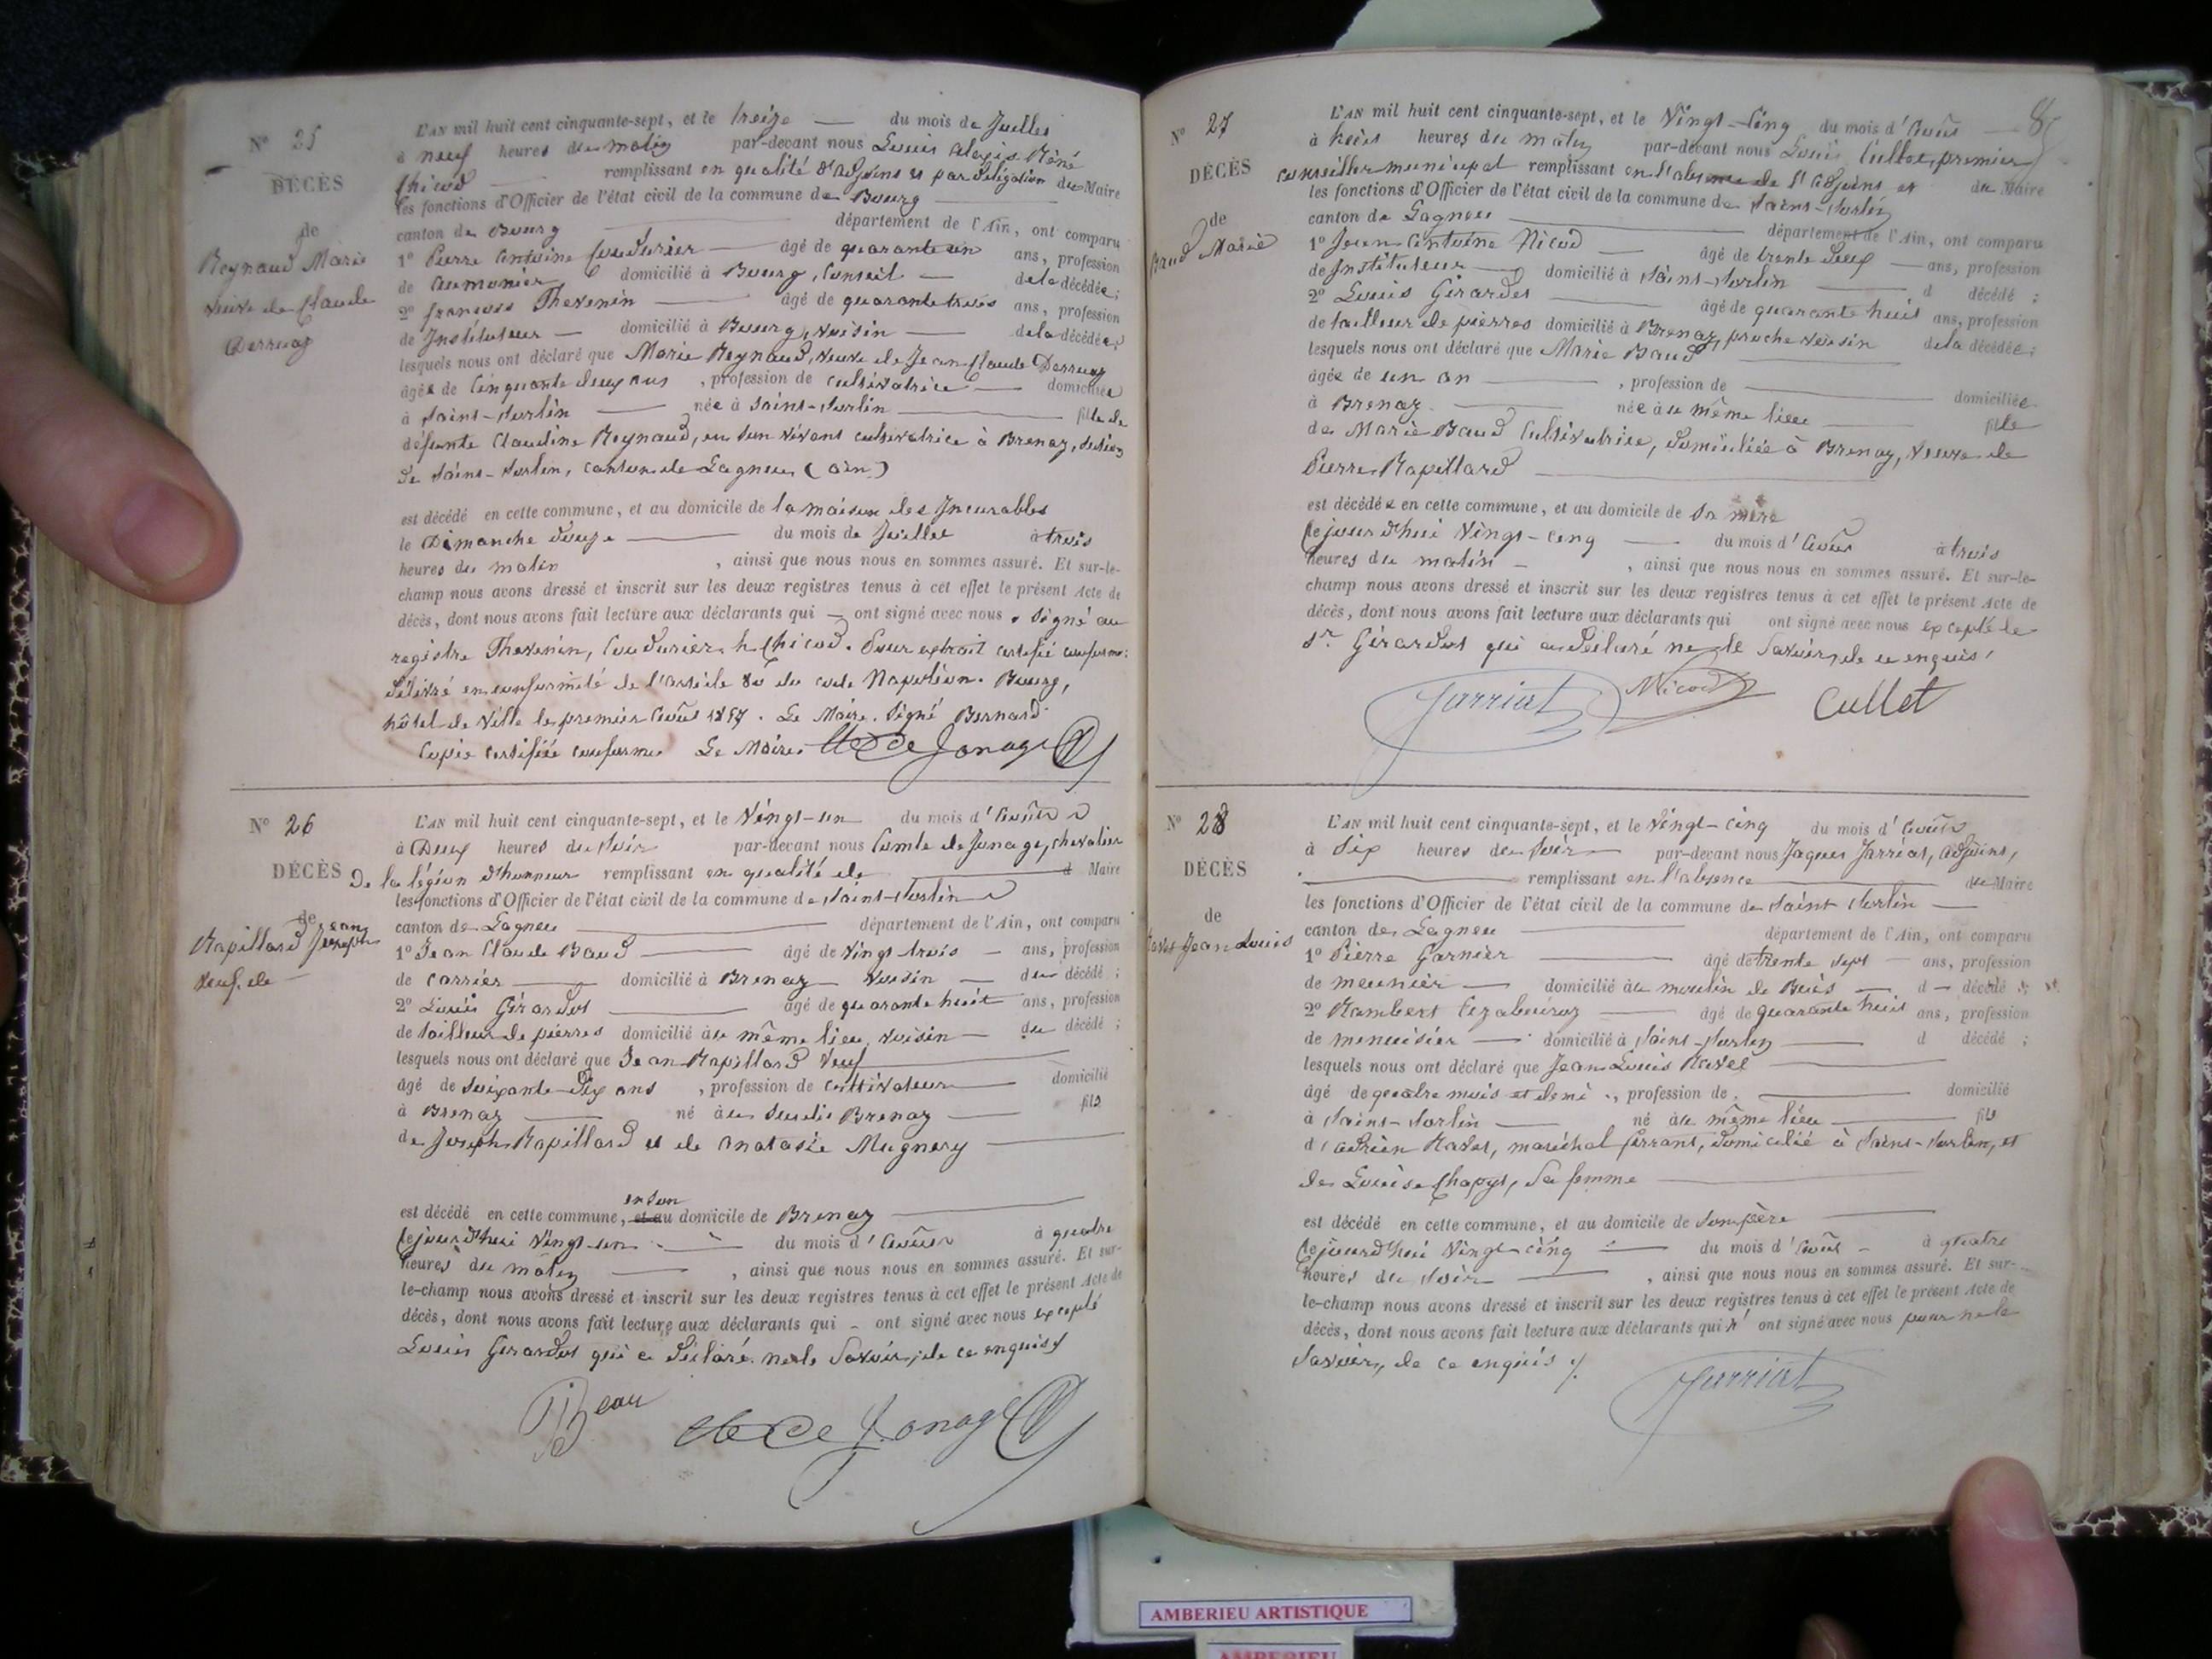 N° 25
DÉCÈS
de
Reynaud Marie
veuve de Claude
Derruaz
L'AN mil huit cent cinquante-sept, et le treize du mois de Juillet
à neuf heures du matin par-devant nous Louis Alexis Réné
Chicod remplissant en qualité d'adjoint et par délégation du Maire
les fonctions d'Officier de l'état civil de la commune de Bourg
canton de Bourg département de l'Ain, ont comparu
1° Pierre Antoine Coudurier âgé de quarante un ans, profession
de Aumonier domicilié à Bourg, Conseil de la décédée;
2° françois Thevenin âgé de quarante trois ans, profession
de Instituteur domicilié à Bourg, voisin de la décédée;
lesquels nous ont déclaré que Marie Reynaud, veuve de Jean Claude Derruaz
âgée de Cinquante deux ans, profession de cultivatrice domiciliée
à Saint-Sorlin née à Saint-Sorlin fille de
défunte Claudine Reynaud, en son vivant cultivatrice à Brenaz, section
de Saint-Sorlin, canton de Lagneu (ain)
est décédé en cette commune, et au domicile de la maison des Incurables
le Dimanche douze du mois de Juillet à trois
heures du matin, ainsi que nous nous en sommes assuré. Et sur-le-
champ nous avons dressé et inscrit sur les deux registres tenus à cet effet le présent Acte de
décès, dont nous avons fait lecture aux déclarants qui ont signé avec nous. Signé au
registre Thevenin, Coudurier, Chicod. Pour extrait certifié conforme:
délivré en conformité de l'article 80 du code Napoléon. Bourg,
hôtel de Ville le premier Août 1857. Le Maire. Signé Bernard
Copie certifiée conforme Le Maire Cte de Jonage
N° 26
DÉCÈS
de
Rapillard Jean
Joseph
veuf de
L'AN mil huit cent cinquante-sept, et le Vingt-un du mois d'Août
à Deux heures du soir par-devant nous Comte de Jonage, chevalier
De la légion d'honneur remplissant en qualité de d Maire
les fonctions d'Officier de l'état civil de la commune de Saint-Sorlin
canton de Lagneu département de l'Ain, ont comparu
1° Jean Claude Baud âgé de Vingt trois ans, profession
de Carrier domicilié à Brenaz voisin du décédé;
2° Louis Girardot âgé de quarante huit ans, profession
de tailleur de pierres domicilié au même lieu, voisin du décédé;
lesquels nous ont déclaré que Jean Rapillard veuf
âgé de soixante-dix ans, profession de cultivateur domicilié
à Brenaz né au susdit Brenaz fils
de Joseph Rapillard et de anatasie Mugnery
en son
est décédé en cette commune, et au domicile de Brenaz
Cejourd'hui Vingt-un du mois d'Août à quatre
heures du matin, ainsi que nous nous en sommes assuré. Et sur-
le-champ nous avons dressé et inscrit sur les deux registres tenus à cet effet le présent Acte de
décès, dont nous avons fait lecture aux déclarants qui ont signé avec nous excepté
Louis Girardot qui a déclaré ne le savoir, de ce enquis
Beau Cte de Jonage
N° 27
DÉCÈS
de
Baud Marie
L'AN mil huit cent cinquante-sept, et le Vingt-Cinq du mois d'Août
à huit heures du matin par-devant nous Louis Cullet, premier
conseiller municipal remplissant en l'absence de l'adjoint et du Maire
les fonctions d'Officier de l'état civil de la commune de Saint-Sorlin
canton de Lagneu département de l'Ain, ont comparu
1° Jean Antoine Nicod âgé de trente deux ans, profession
de Instituteur domicilié à Saint-Sorlin d décédé;
2° Louis Girardot âgé de quarante huit ans, profession
de tailleur de pierres domicilié à Brenaz, proche voisin de la décédée;
lesquels nous ont déclaré que Marie Baud
âgée de un an, profession de domiciliée
à Brenaz née au même lieu fille
de Marie Baud Cultivatrice, domiciliée à Brenaz, veuve de
Pierre Rapillard
est décédée en cette commune, et au domicile de Sa mère
Cejourd'hui Vingt-cinq du mois d'Août à trois
heures du matin, ainsi que nous nous en sommes assuré. Et sur-le-
champ nous avons dressé et inscrit sur les deux registres tenus à cet effet le présent Acte de
décès, dont nous avons fait lecture aux déclarants qui ont signé avec nous excepté le
Sr. Girardot qui a déclaré ne le savoir, de ce enquis
Jarriat Nicod Cullet
N° 28
DÉCÈS
de
Ravet Jean Louis
L'AN mil huit cent cinquante-sept, et le Vingt-cinq du mois d'Août
à Six heures du Soir par-devant nous Jaques Jarriat, adjoint,
remplissant en l'absence du Maire
les fonctions d'Officier de l'état civil de la commune de Saint Sorlin
canton de Lagneu département de l'Ain, ont comparu
1° Pierre Garnier âgé de trente sept ans, profession
de meunier domicilié au moulin de Buis d décédé;
2° Rambert âgé de quarante huit ans, profession
de menuisier domicilié à Saint-Sorlin d décédé;
lesquels nous ont déclaré que Jean Louis Ravet
âgé de quatre mois et demi, profession de domicilié
à Saint-Sorlin né au même lieu fils
d'adrien Ravet, maréchal ferrant, domicilié à Saint-Sorlin, et
de Louise Chapot, Sa femme
est décédé en cette commune, et au domicile de Son père
Cejourd'hui Vingt-cinq du mois d'Août à quatre
heures du Soir, ainsi que nous nous en sommes assuré. Et sur-
le-champ nous avons dressé et inscrit sur les deux registres tenus à cet effet le présent Acte de
décès, dont nous avons fait lecture aux déclarants qui n'ont signé avec nous pour ne le
Savoir, de ce enquis
Jarriat
AMBERIEU ARTISTIQUE
AMBERIEU